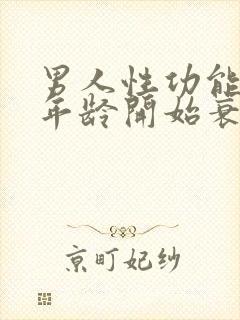 男人性功能
年龄开始衰
京町妃纱